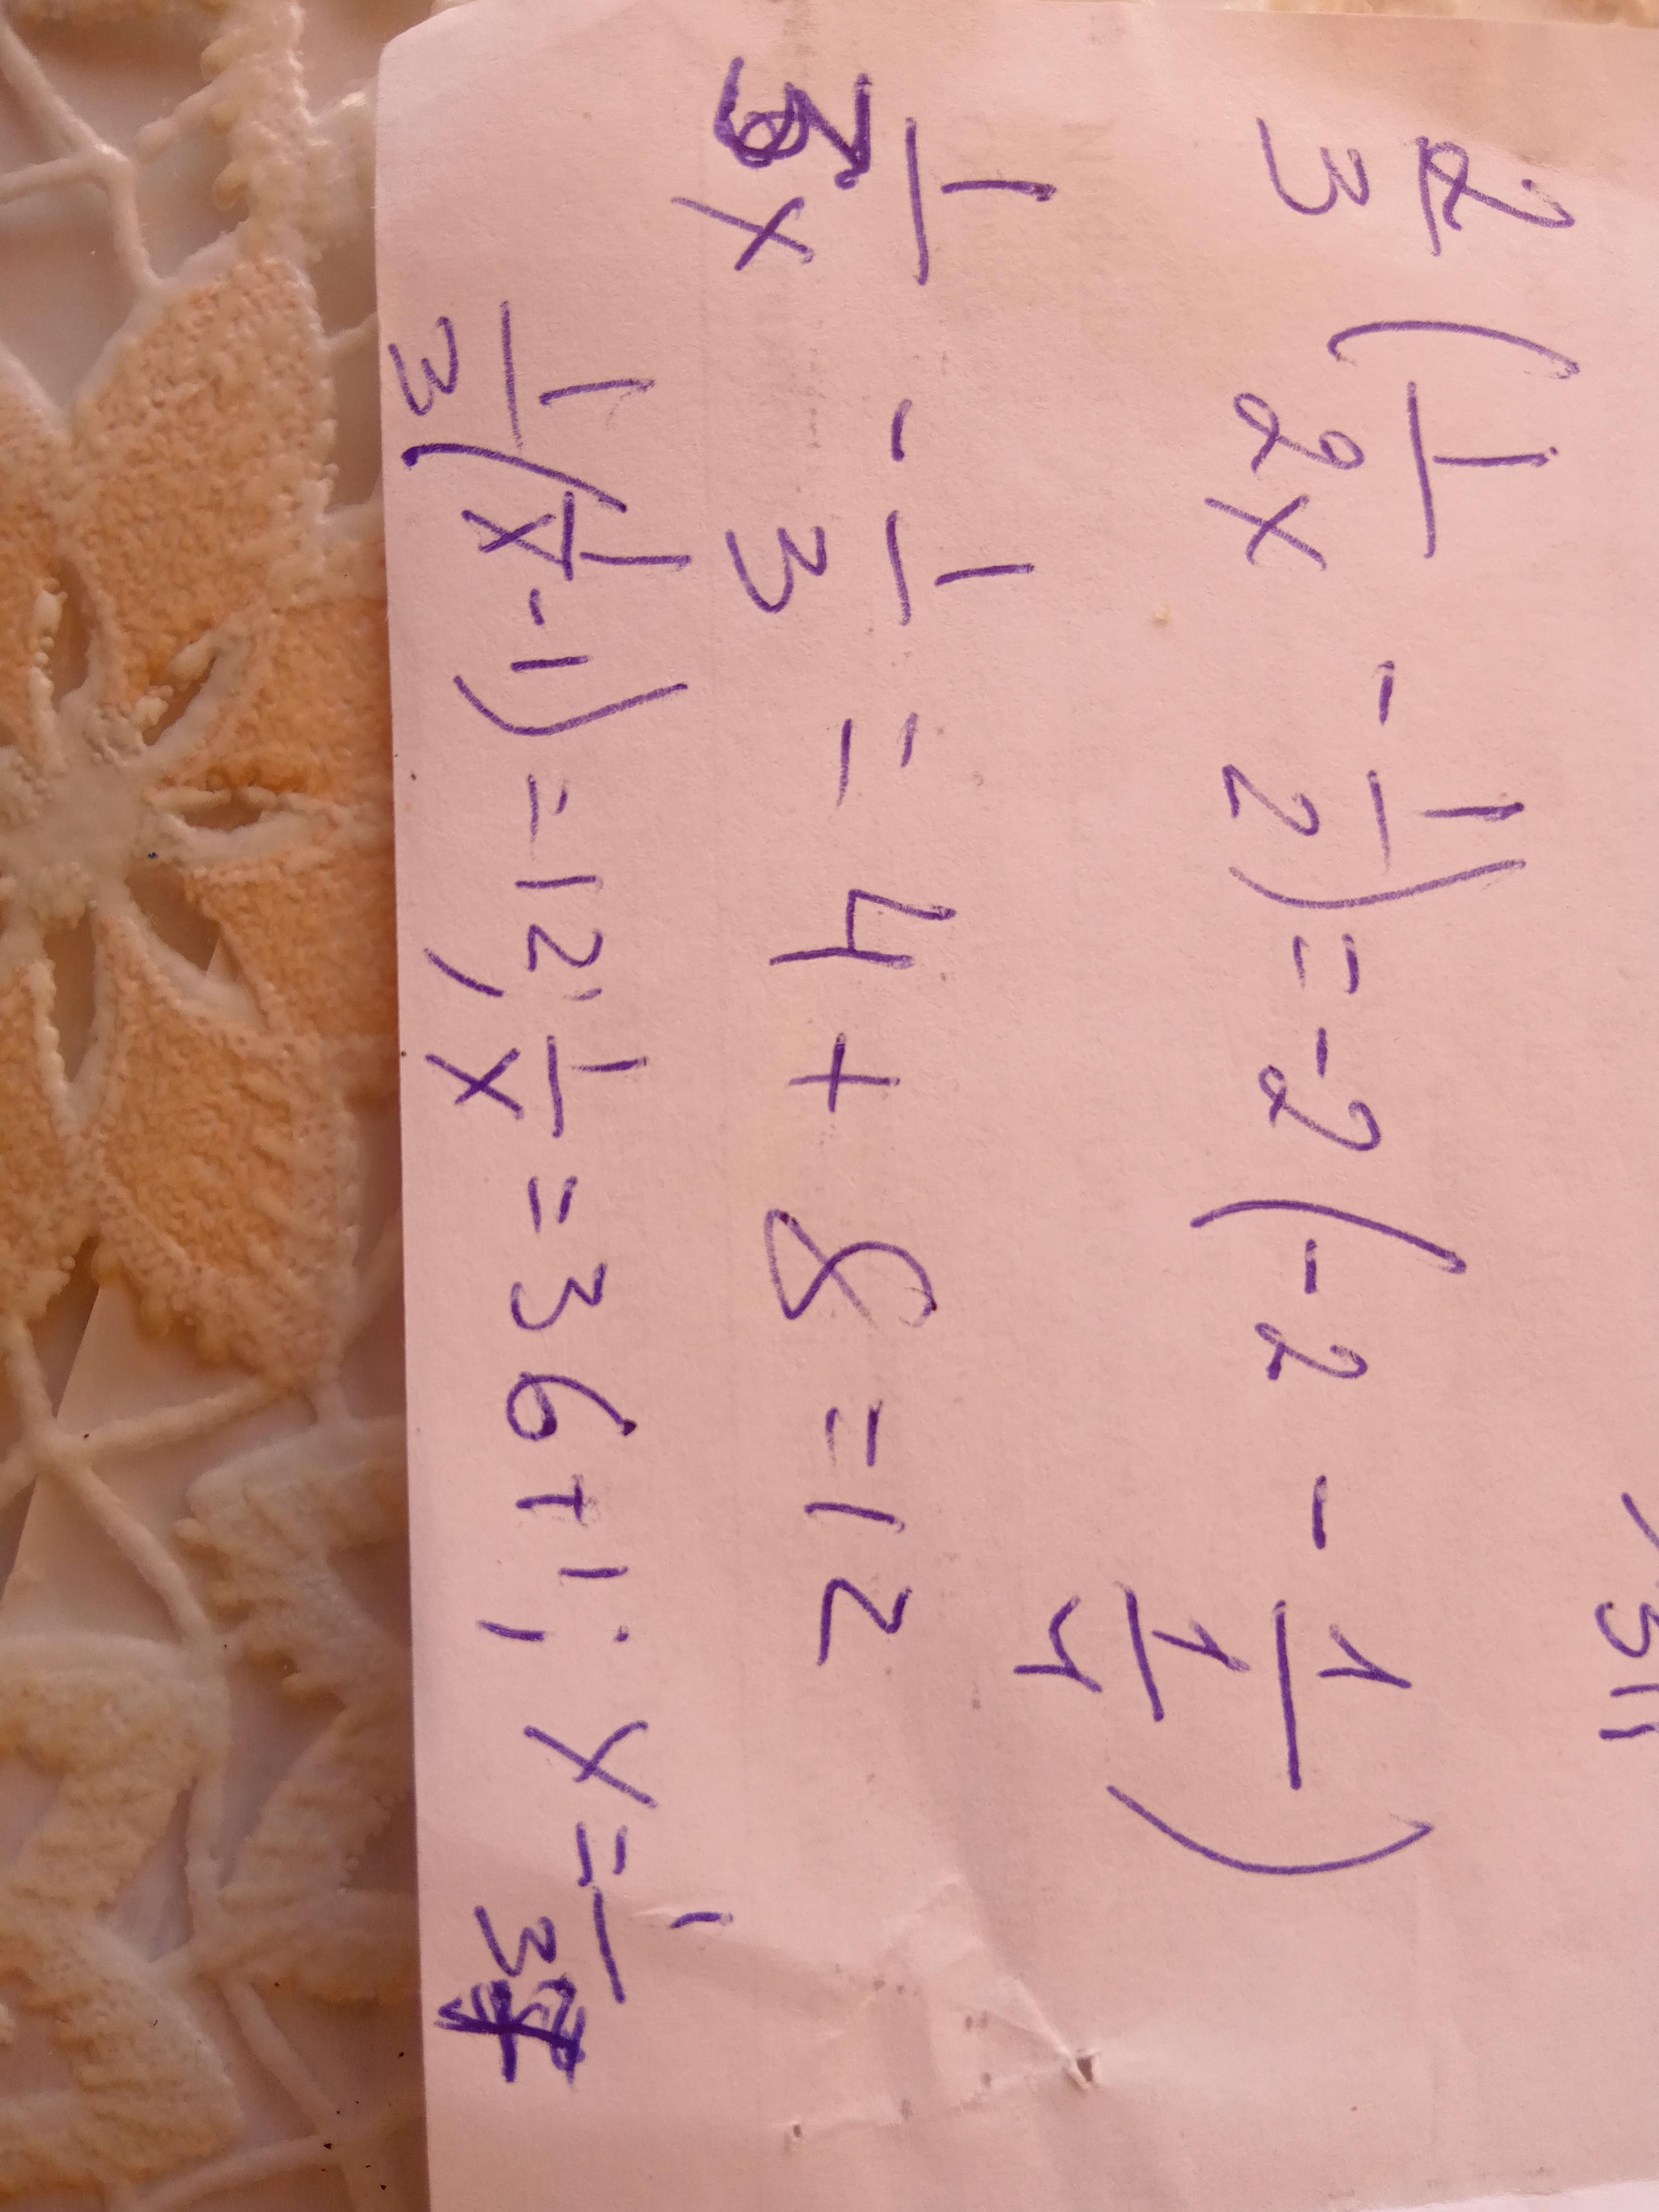 2/3 (1/2x - 1/2) = -2 (-2 - 1/(1/4))
1/3x - 1/3 = 4 + 8 = 12
1/3 (1/x - 1) = 12; 1/x = 36 + 1; x = 1/37